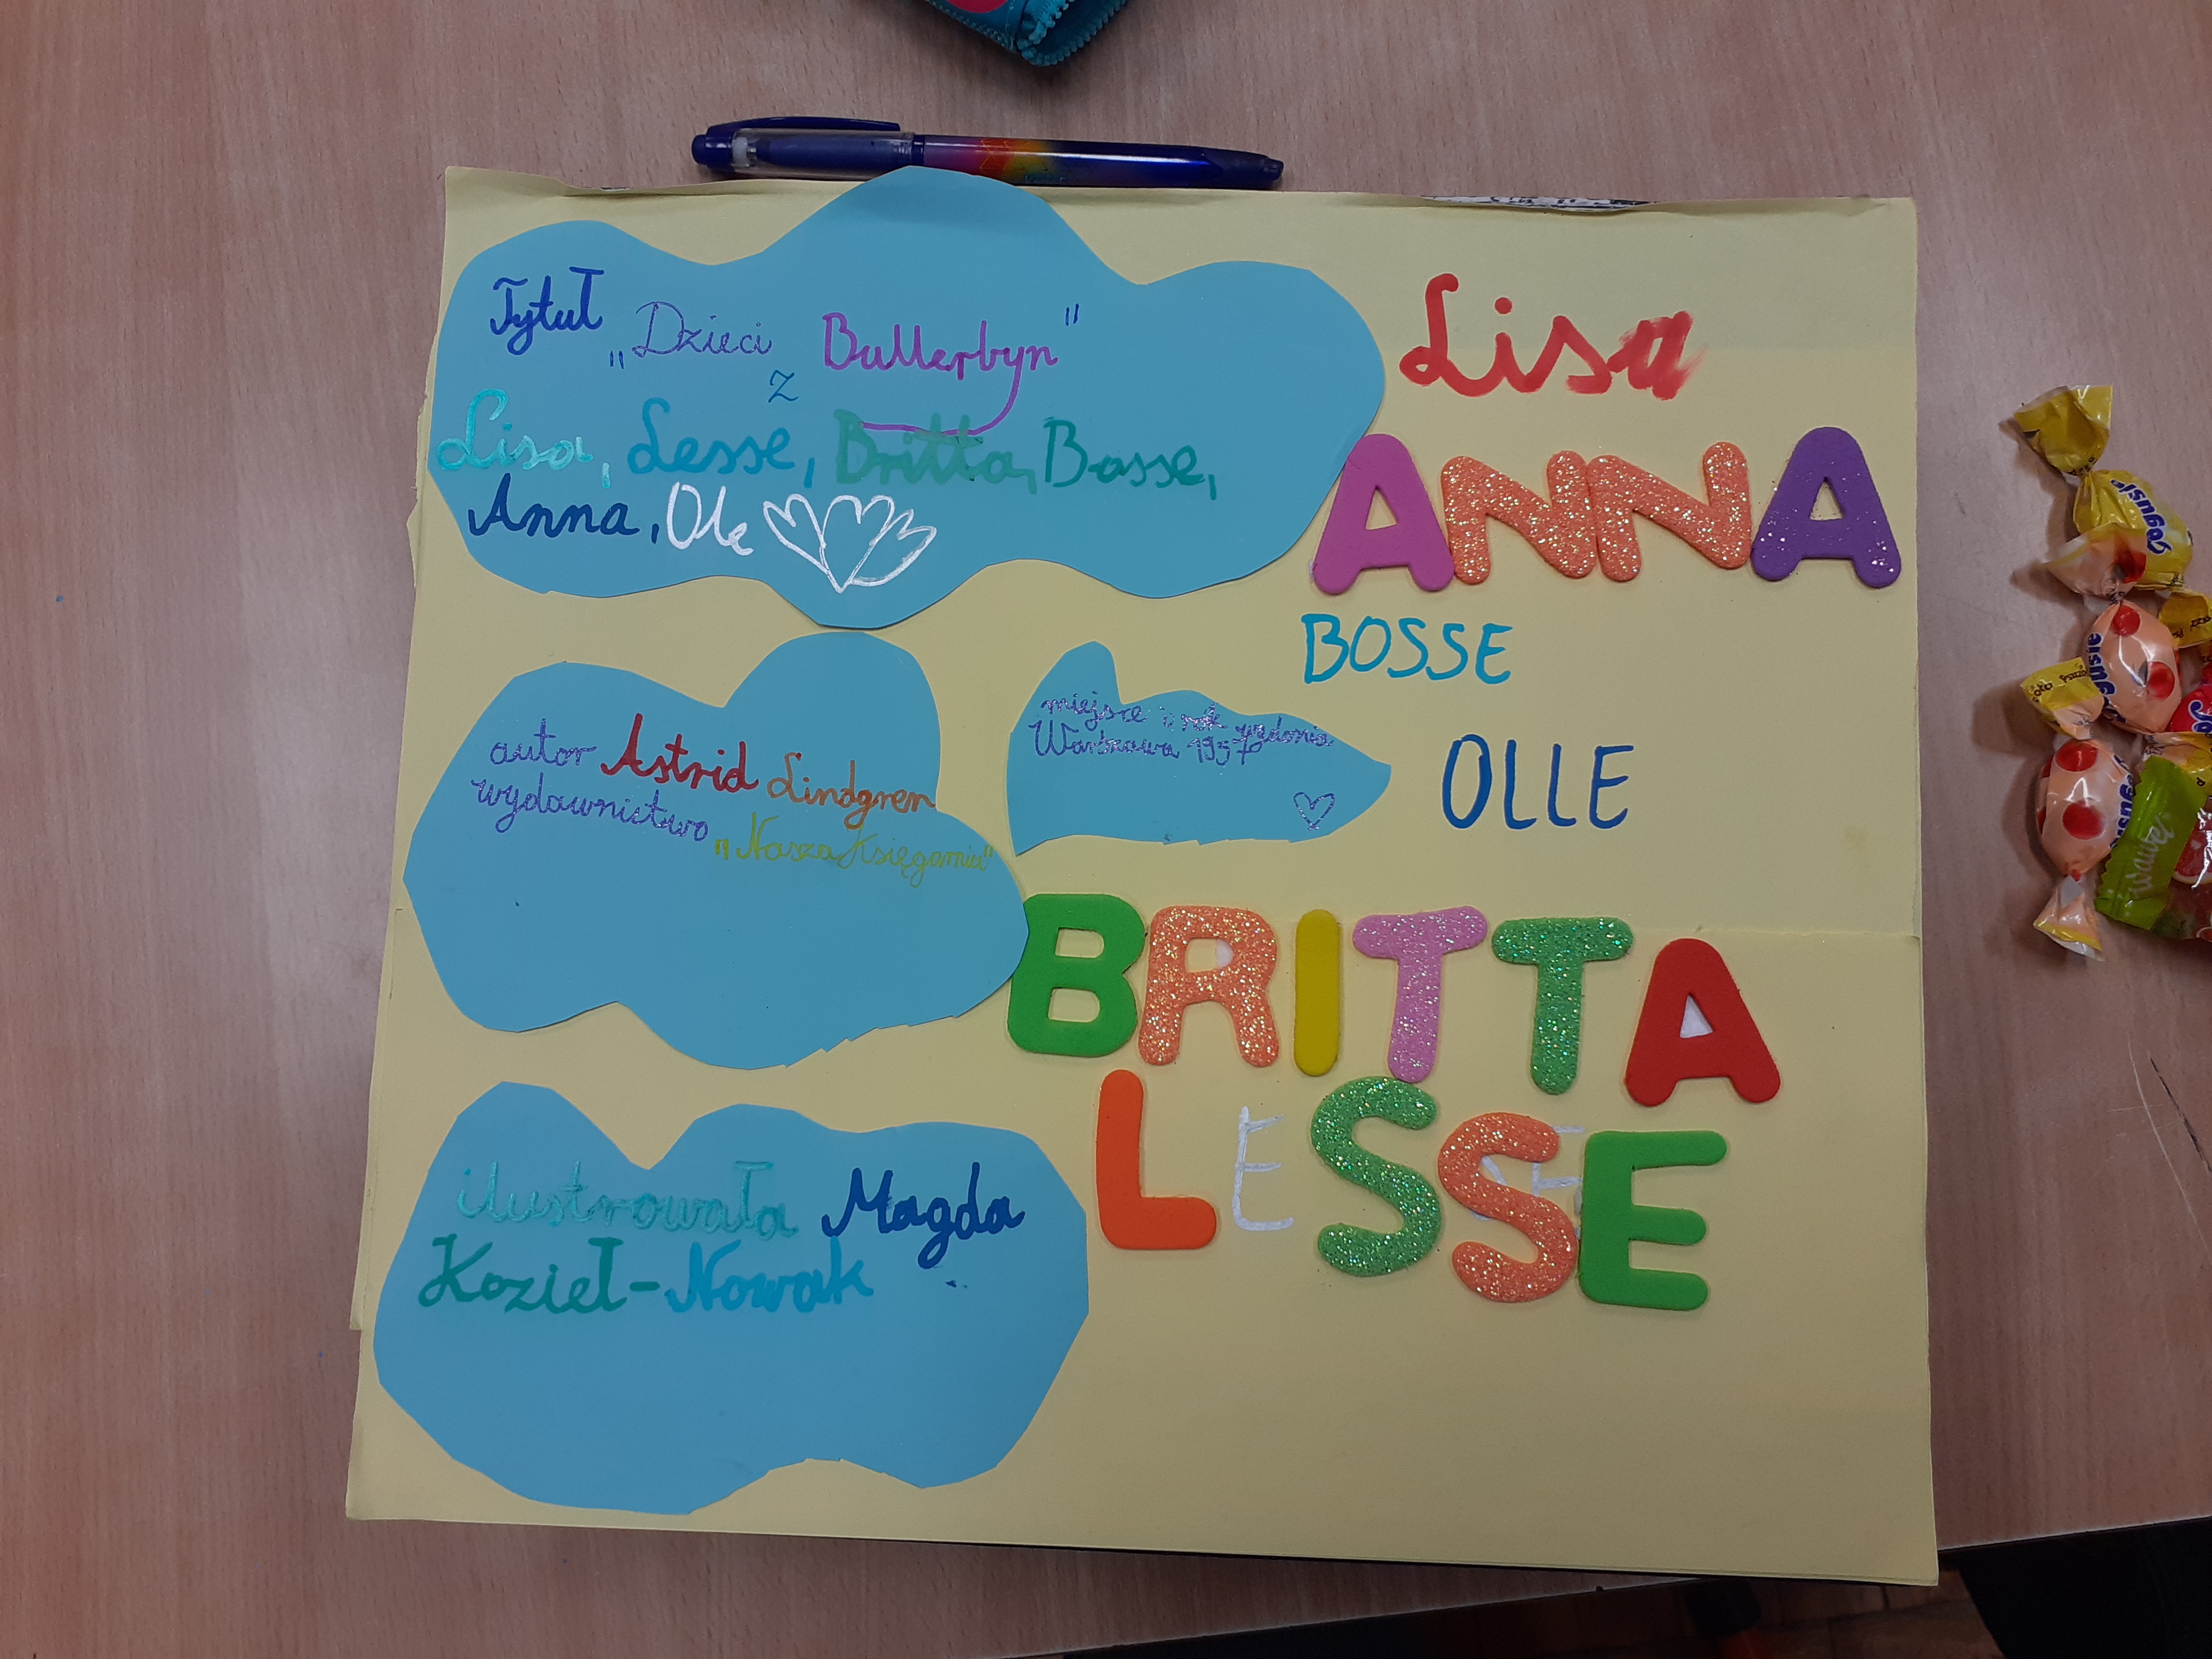 Tytuł „Dzieci z Bullerbyn"
Lisa, Lesse, Britta, Bosse,
Anna, Ole
autor Astrid Lindgren
wydawnictwo „Nasza Księgarnia"
miejsce i rok wydania
Warszawa 1957
ilustrowała Magda
Kozieł-Nowak
Lisa
ANNA
BOSSE
OLLE
BRITTA
LESSE
wawel